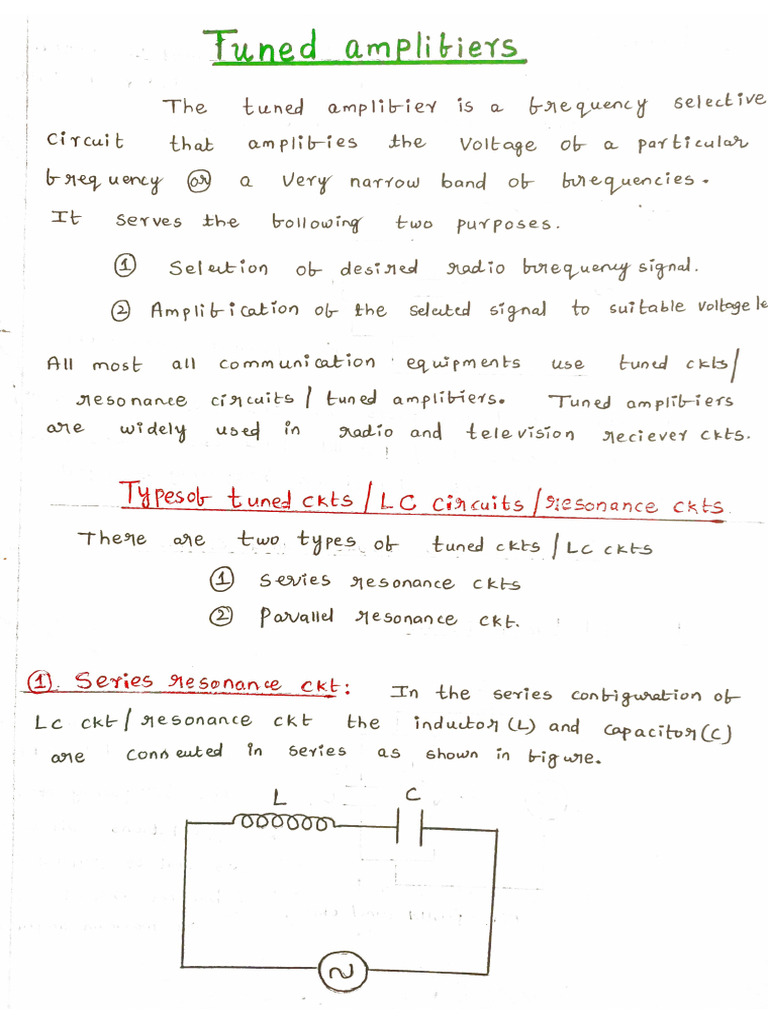 Tuned amplifiers
The tuned amplifier is a frequency selective
Circuit that amplifies the voltage of a particular
frequency (or) a very narrow band of frequencies.
It serves the following two purposes.
① Selection of desired radio frequency signal.
② Amplification of the selected signal to suitable voltage le
All most all communication equipments use tuned ckts/
resonance circuits / tuned amplifiers. Tuned amplifiers
are widely used in radio and television reciever ckts.
Types of tuned ckts / LC circuits / resonance ckts.
There are two types of tuned ckts / LC ckts
① Series resonance ckts
② Parallel resonance ckt.
①. Series resonance ckt: In the series configuration of
LC ckt / resonance ckt the inductor (L) and capacitor (C)
are connected in series as shown in figure.
L C